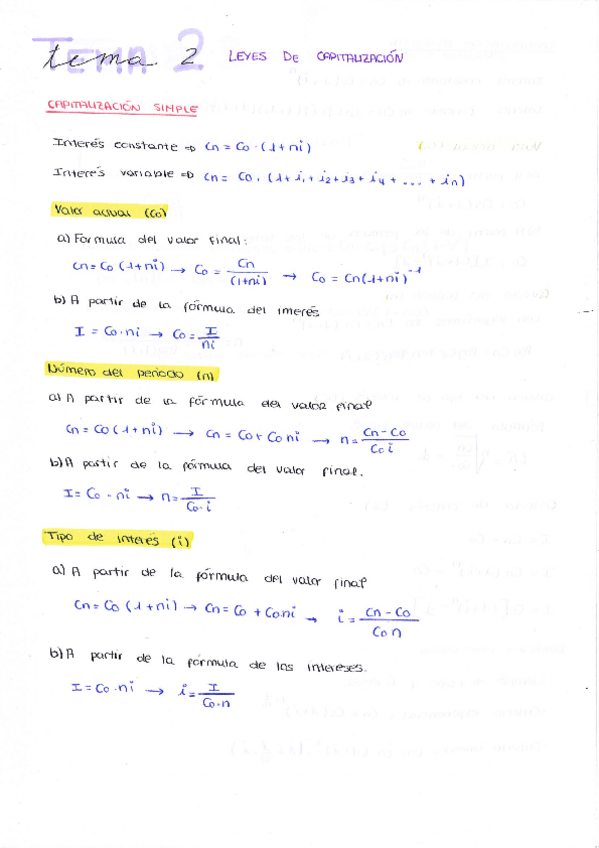 TEMA 2
tema 2 LEYES DE CAPITALIZACIÓN
CAPITALIZACIÓN SIMPLE
Interés constante ⇒ Cn = Co · (1 + ni)
Interés variable ⇒ Cn = Co · (1 + i1 + i2 + i3 + i4 + ... + in)
Valor actual (Co)
a) Formula del valor final:
Cn = Co (1 + ni) → Co = Cn/(1+ni) → Co = Cn (1 + ni)^-1
b) A partir de la fórmula del interés
I = Co · ni → Co = I/ni
Número del periodo (n)
a) A partir de la fórmula del valor final
Cn = Co (1 + ni) → Cn = Co + Co ni → n = Cn - Co/Co i
b) A partir de la fórmula del valor final.
I = Co · ni → n = I/Co · i
Tipo de interés (i)
a) A partir de la fórmula del valor final
Cn = Co (1 + ni) → Cn = Co + Co ni → i = Cn - Co/Co n
b) A partir de la fórmula de los intereses.
I = Co · ni → i = I/Co · n